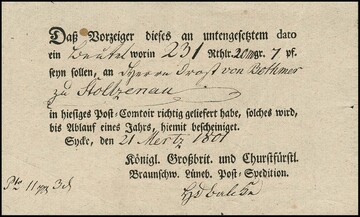 Daß Vorzeiger dieses an untengesetztem dato
ein Beutel worin 231 Rthlr. 20 mgr. 7 pf.
seyn sollen, an Herrn Drost von Bothmer
zu Stoltzenau
in hiesiges Post-Comtoir richtig geliefert habe, solches wird,
bis Ablauf eines Jahrs, hiemit bescheiniget.
Syke, den 21 Mertz 1801
Königl. Großbrit. und Churfürstl.
Braunschw. Lüneb. Post-Spedition.
11 3